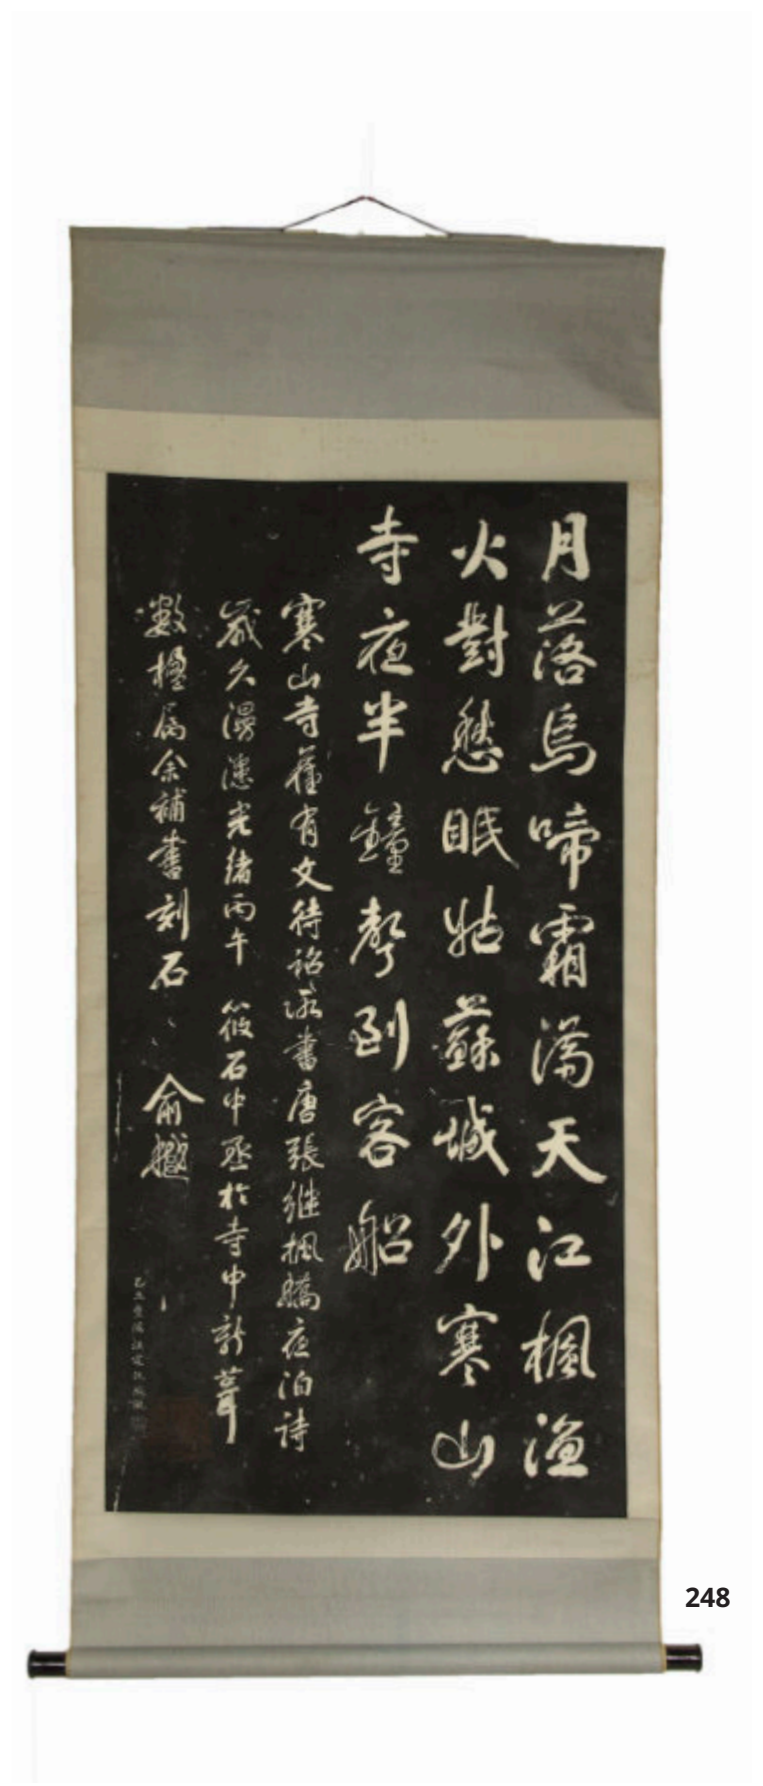 月落烏啼霜滿天江楓漁
火對愁眠姑蘇城外寒山
寺夜半鐘聲到客船
寒山寺舊有文待詔所書唐張繼楓橋夜泊詩
歲久漫漶光緒丙午 筱石中丞於寺中新葺
數楹屬余補書刻石 俞樾
248